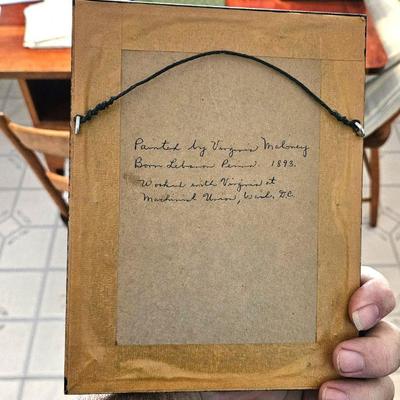 Painted by Virginia Maloney
Born Lebanon Penna. 1893.
Worked with Virginia at
Machinist Union, Wash, D.C.